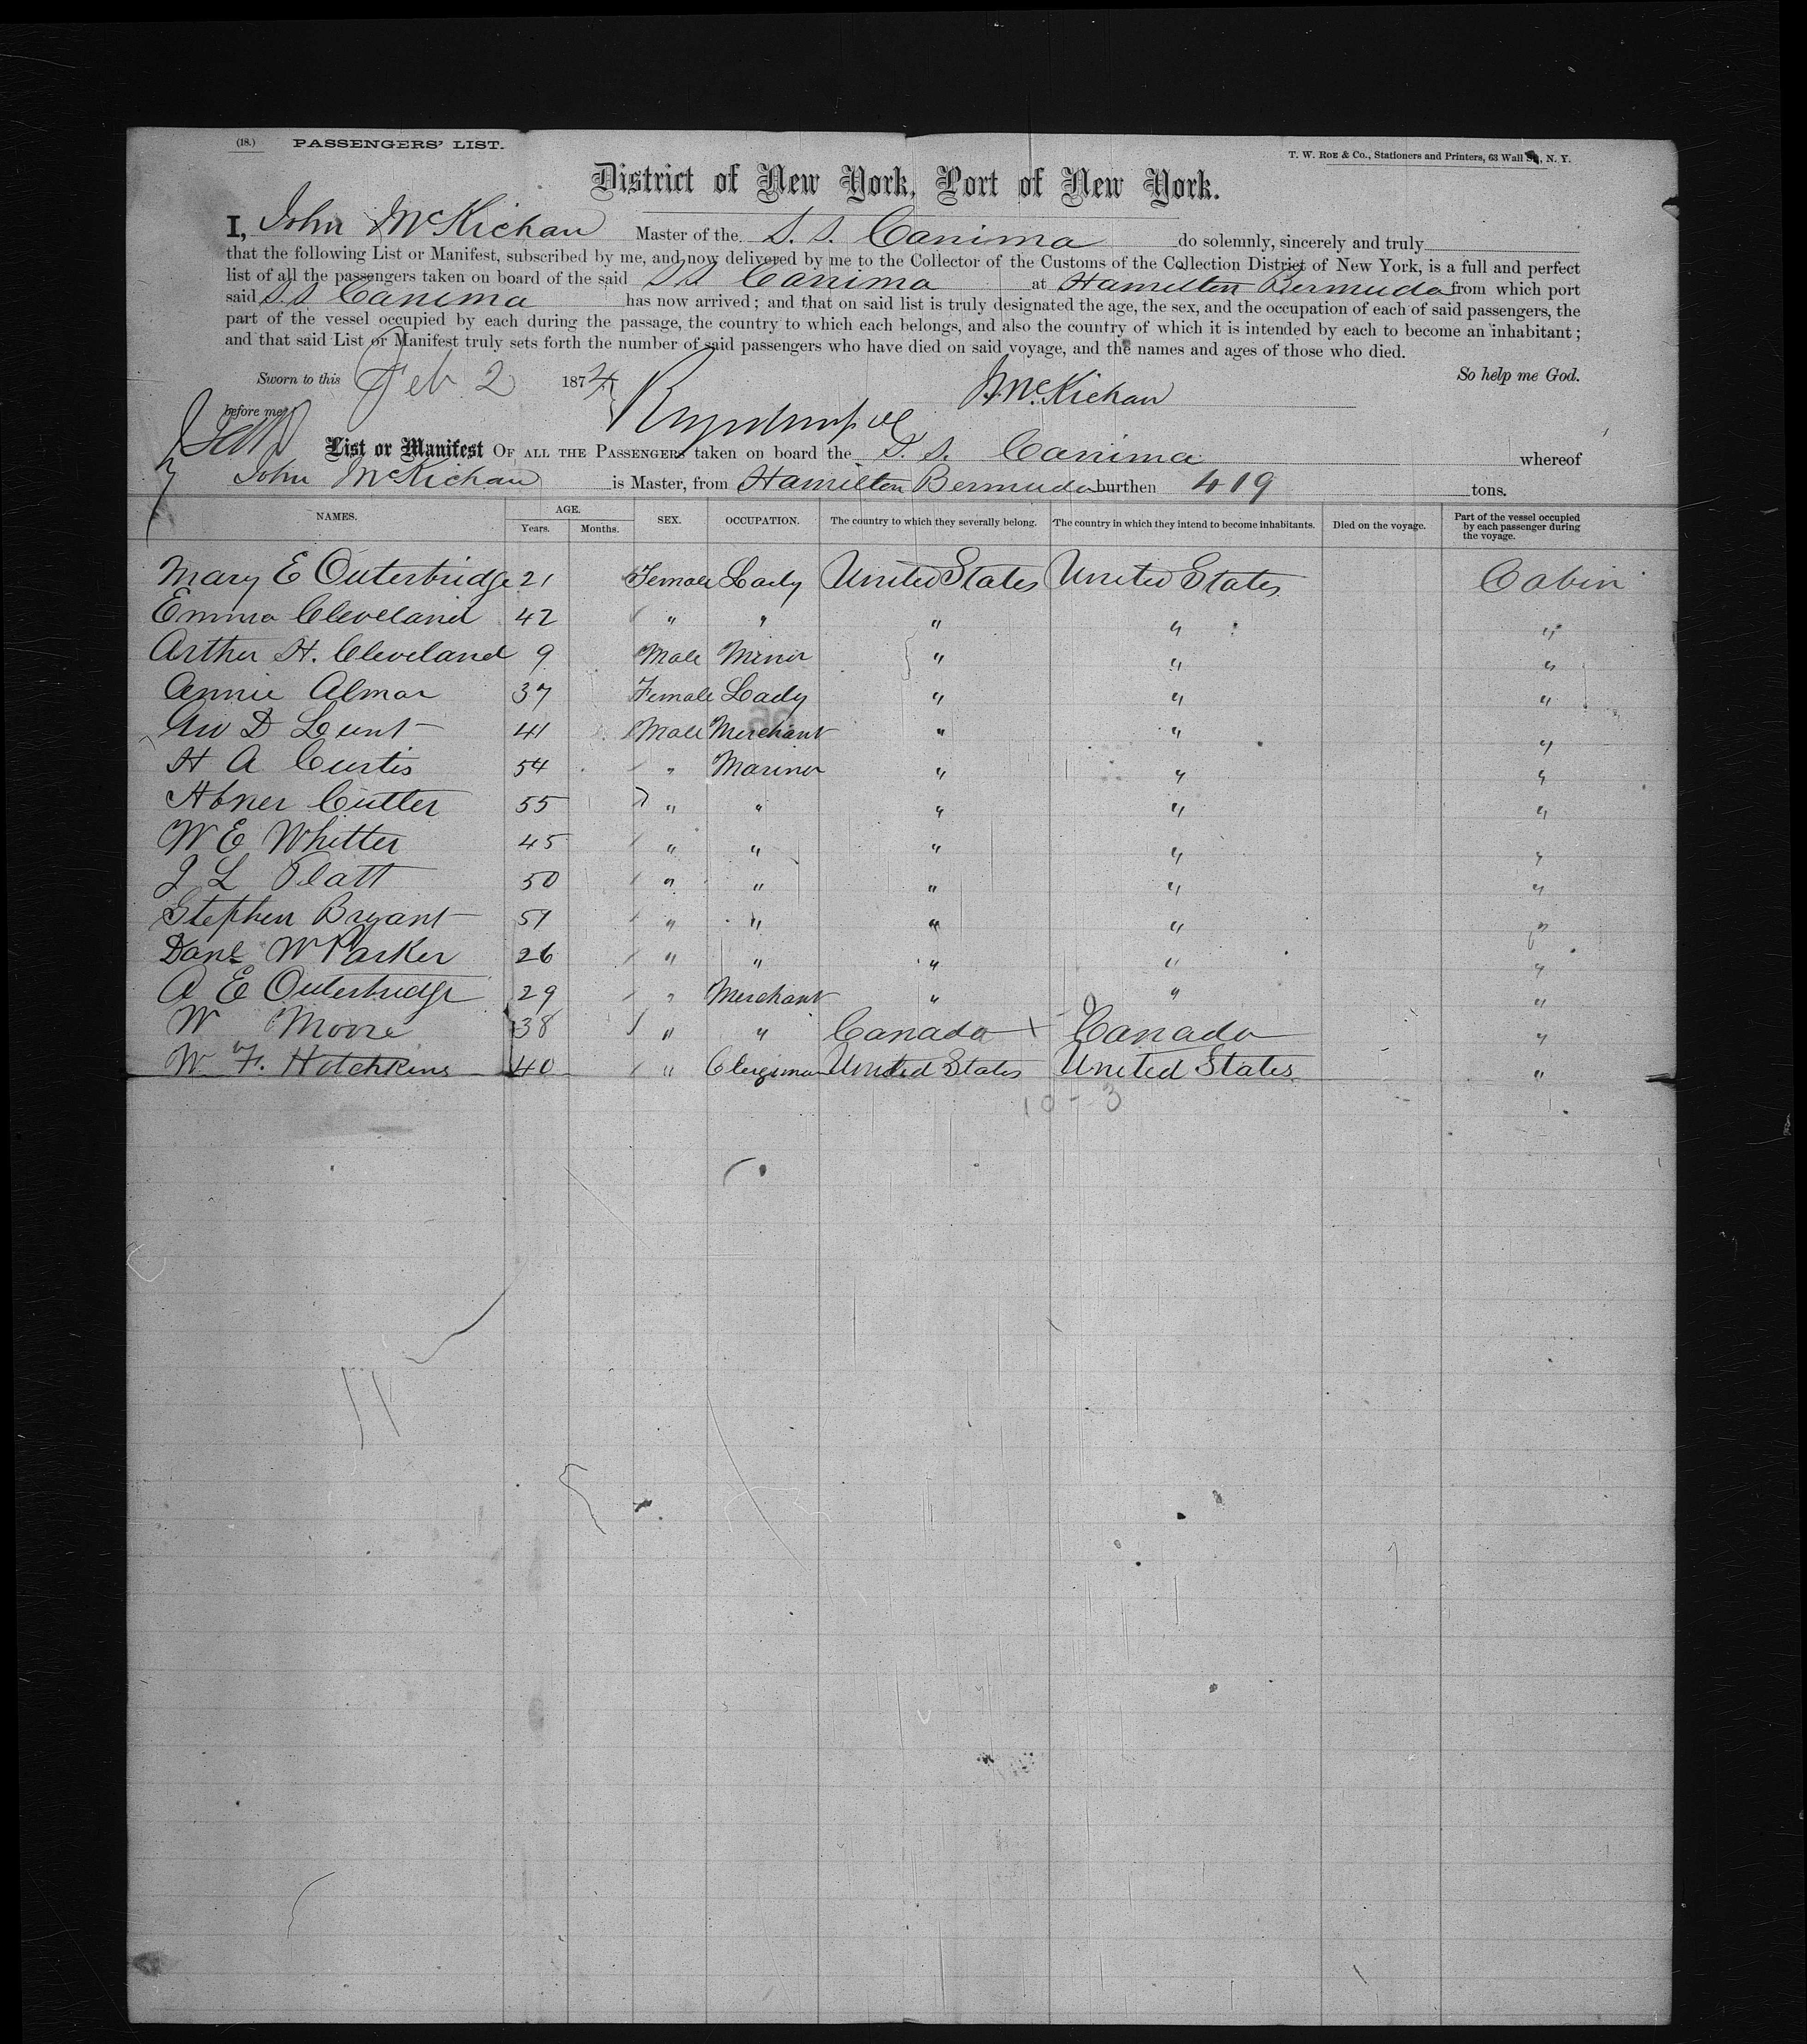 (18.) PASSENGERS' LIST.
T. W. Roe & Co., Stationers and Printers, 63 Wall St., N. Y.
District of New York, Port of New York.
I, John McKichan Master of the S. S. Canima do solemnly, sincerely and truly
that the following List or Manifest, subscribed by me, and now delivered by me to the Collector of the Customs of the Collection District of New York, is a full and perfect
list of all the passengers taken on board of the said SS Canima at Hamilton Bermuda from which port
said S.S Canima has now arrived; and that on said list is truly designated the age, the sex, and the occupation of each of said passengers, the
part of the vessel occupied by each during the passage, the country to which each belongs, and also the country of which it is intended by each to become an inhabitant;
and that said List or Manifest truly sets forth the number of said passengers who have died on said voyage, and the names and ages of those who died.
Sworn to this Feb 2 1874 So help me God.
J. McKichan
before me
List or Manifest Of all the Passengers taken on board the S. S. Canima whereof
John McKichan is Master, from Hamilton Bermuda burthen 419 tons.
NAMES. AGE. Years. Months. SEX. OCCUPATION. The country to which they severally belong. The country in which they intend to become inhabitants. Died on the voyage. Part of the vessel occupied by each passenger during the voyage.
Mary E Outerbridge 21 Female Lady United States United States Cabin
Emma Cleveland 42 " " " " "
Arthur H. Cleveland 9 Male Minor " " "
Annie Almar 37 Female Lady " " "
Geo D Lunt 41 Male Merchant " " "
H A Curtis 54 " Mariner " " "
Abner Cutter 55 " " " " "
W E Whitter 45 " " " " "
J L Platt 50 " " " " "
Stephen Bryant 51 " " " " "
Danl W Parker 26 " " " " "
A E Outerbridge 29 " Merchant " " "
W Moore 38 " " Canada Canada "
W F. Hotchkins 40 " Clergiman United States United States "
10-3